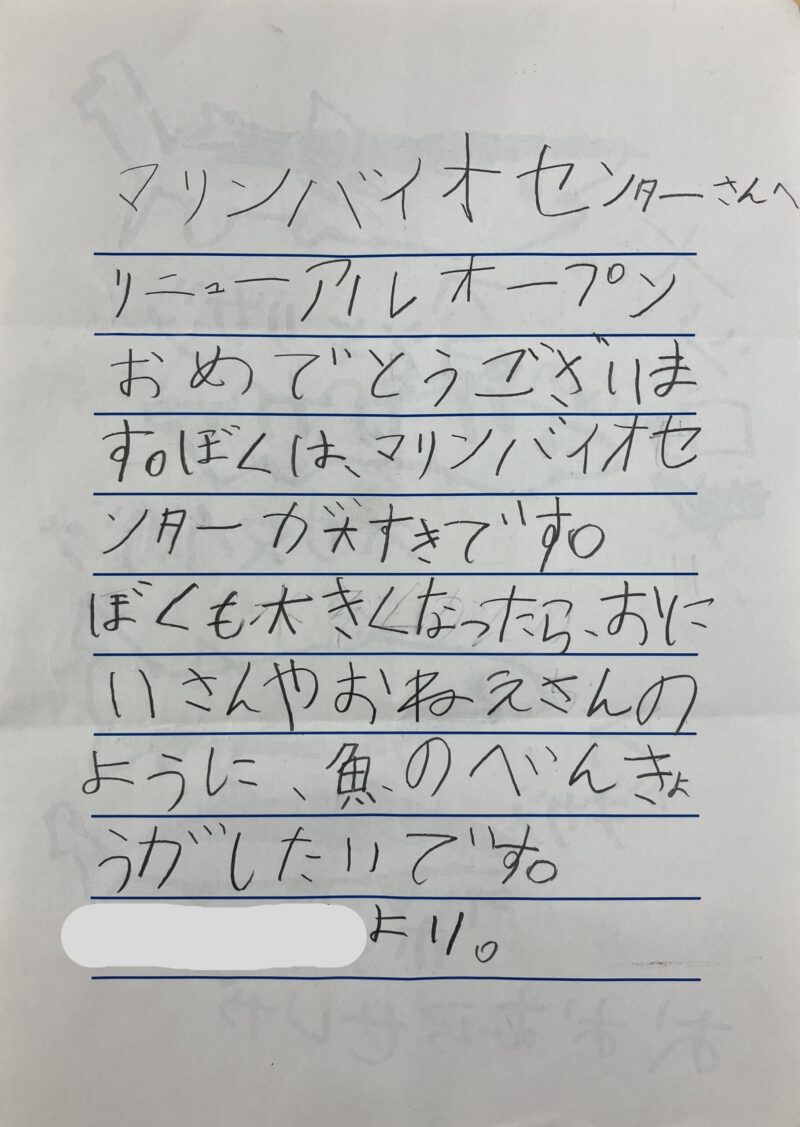 マリンバイオセンターさんへ
リニューアルオープン
おめでとうございま
す。ぼくは、マリンバイオセ
ンターが大すきです。
ぼくも大きくなったら、おに
いさんやおねえさんの
ように、魚のべんきょ
うがしたいです。
より。